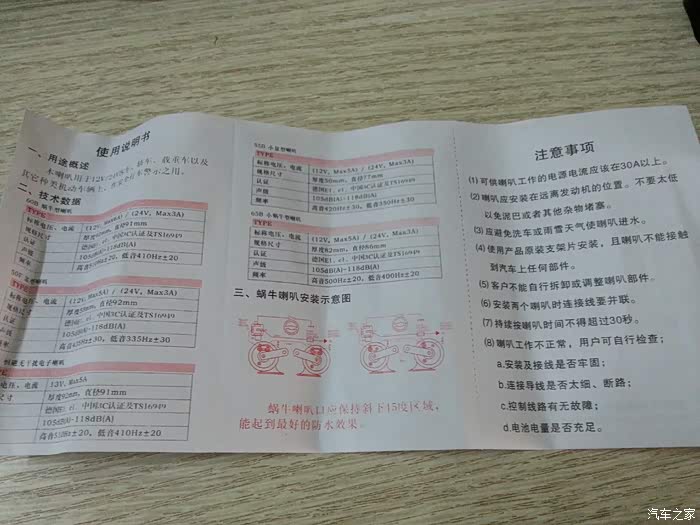 使用说明书
一、用途概述
本喇叭用于12V/24V轿车、载重车以及
其它种类机动车辆上,作安全行车警示之用。
二、技术数据
60B 蜗牛型喇叭
TYPE
标称电压、电流 (12V, Max5A) / (24V, Max3A)
规格尺寸 直径91mm
认证 德国E1、e1、中国3C认证及TS16949
声级 105dB(A)-118dB(A)
频率 高音510Hz±20、低音410Hz±20
50E
TYPE
标称电压、电流 (12V, Max5A) / (24V, Max3A)
规格尺寸 直径92mm
认证 德国E1、e1、中国3C认证及TS16949
声级 105dB(A)-118dB(A)
频率 高音420Hz±20、低音335Hz±20
无干扰电子喇叭
电压、电流 13V, Max5A
尺寸 直径91mm
德国E1、e1、中国3C认证及TS16949
105dB(A)-118dB(A)
高音510Hz±20、低音410Hz±20
TYPE
标称电压、电流 (12V, Max5A) / (24V, Max3A)
规格尺寸 厚度50mm、直径77mm
认证 德国E1、e1、中国3C认证及TS16949
声级 105dB(A)-118dB(A)
频率 高音420Hz±20、低音350Hz±20
65B 小蜗牛型喇叭
TYPE
标称电压、电流 (12V, Max5A) / (24V, Max3A)
规格尺寸 厚度82mm、直径86mm
认证 德国E1、e1、中国3C认证及TS16949
声级 105dB(A)-118dB(A)
频率 高音500Hz±20、低音400Hz±20
三、蜗牛喇叭安装示意图
蜗牛喇叭口应保持斜下15度区域,
能起到最好的防水效果。
注意事项
(1) 可供喇叭工作的电源电流应该在30A以上。
(2) 喇叭应安装在远离发动机的位置。不要太低
以免泥巴或者其他杂物堵塞。
(3) 应避免洗车或雨雪天气使喇叭进水。
(4) 使用产品原装支架片安装,且喇叭不能接触
到汽车上任何部件。
(5) 客户不能自行拆卸或调整喇叭部件。
(6) 安装两个喇叭时连接线要并联。
(7) 持续按喇叭时间不得超过30秒。
(8) 喇叭工作不正常,用户可自行检查;
a.安装及接线是否牢固;
b.连接导线是否太细、断路;
c.控制线路有无故障;
d.电池电量是否充足。
汽车之家